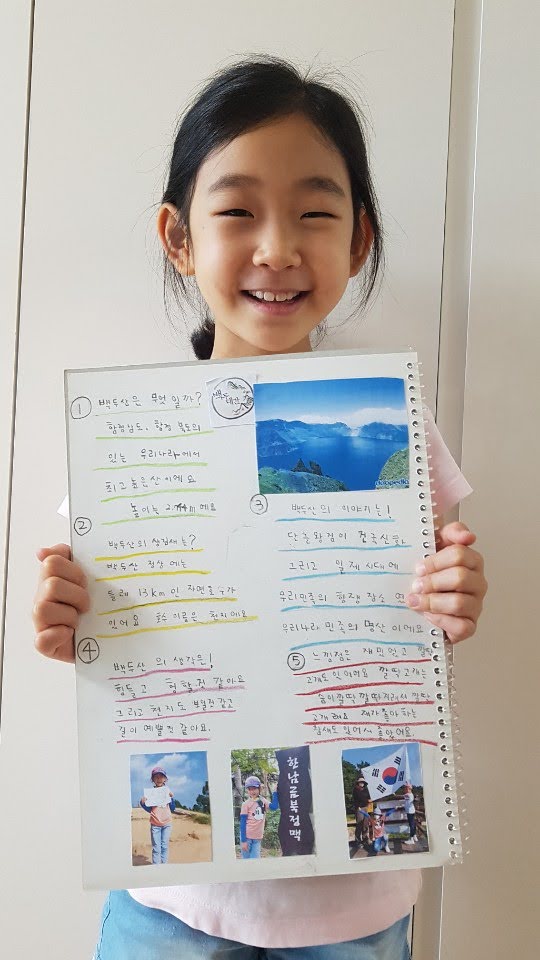 ① 백두산은 무엇 일까?
함경남도, 함경 북도의
있는 우리나라에서
최고높은산이에요
높이는 2.744m 예요
백두
대간
doopedia
②
백두산의 생김새는?
백두산 정상 에는
둘레 13km인 자연호수가
있어요 호수 이름은 천지에요
③
백두산의 이야기는!
단군왕검이
그리고 일제 시대에
우리민족의 항쟁 장소
우리나라 민족의 명산 이에요
④
백두산 의 생각은!
힘들고 험할것 같아요
그리고 천지도 보일것 같고
길이 예쁠것 같아요.
⑤ 느낌점은 재밌었고 깔딱
고개도 있어어요 깔딱고개는
숨이깔딱 깔딱지려서 깔딱
고개 래요 제가 좋아 하는
참새도 있어서 좋았어요.
한남금북정맥